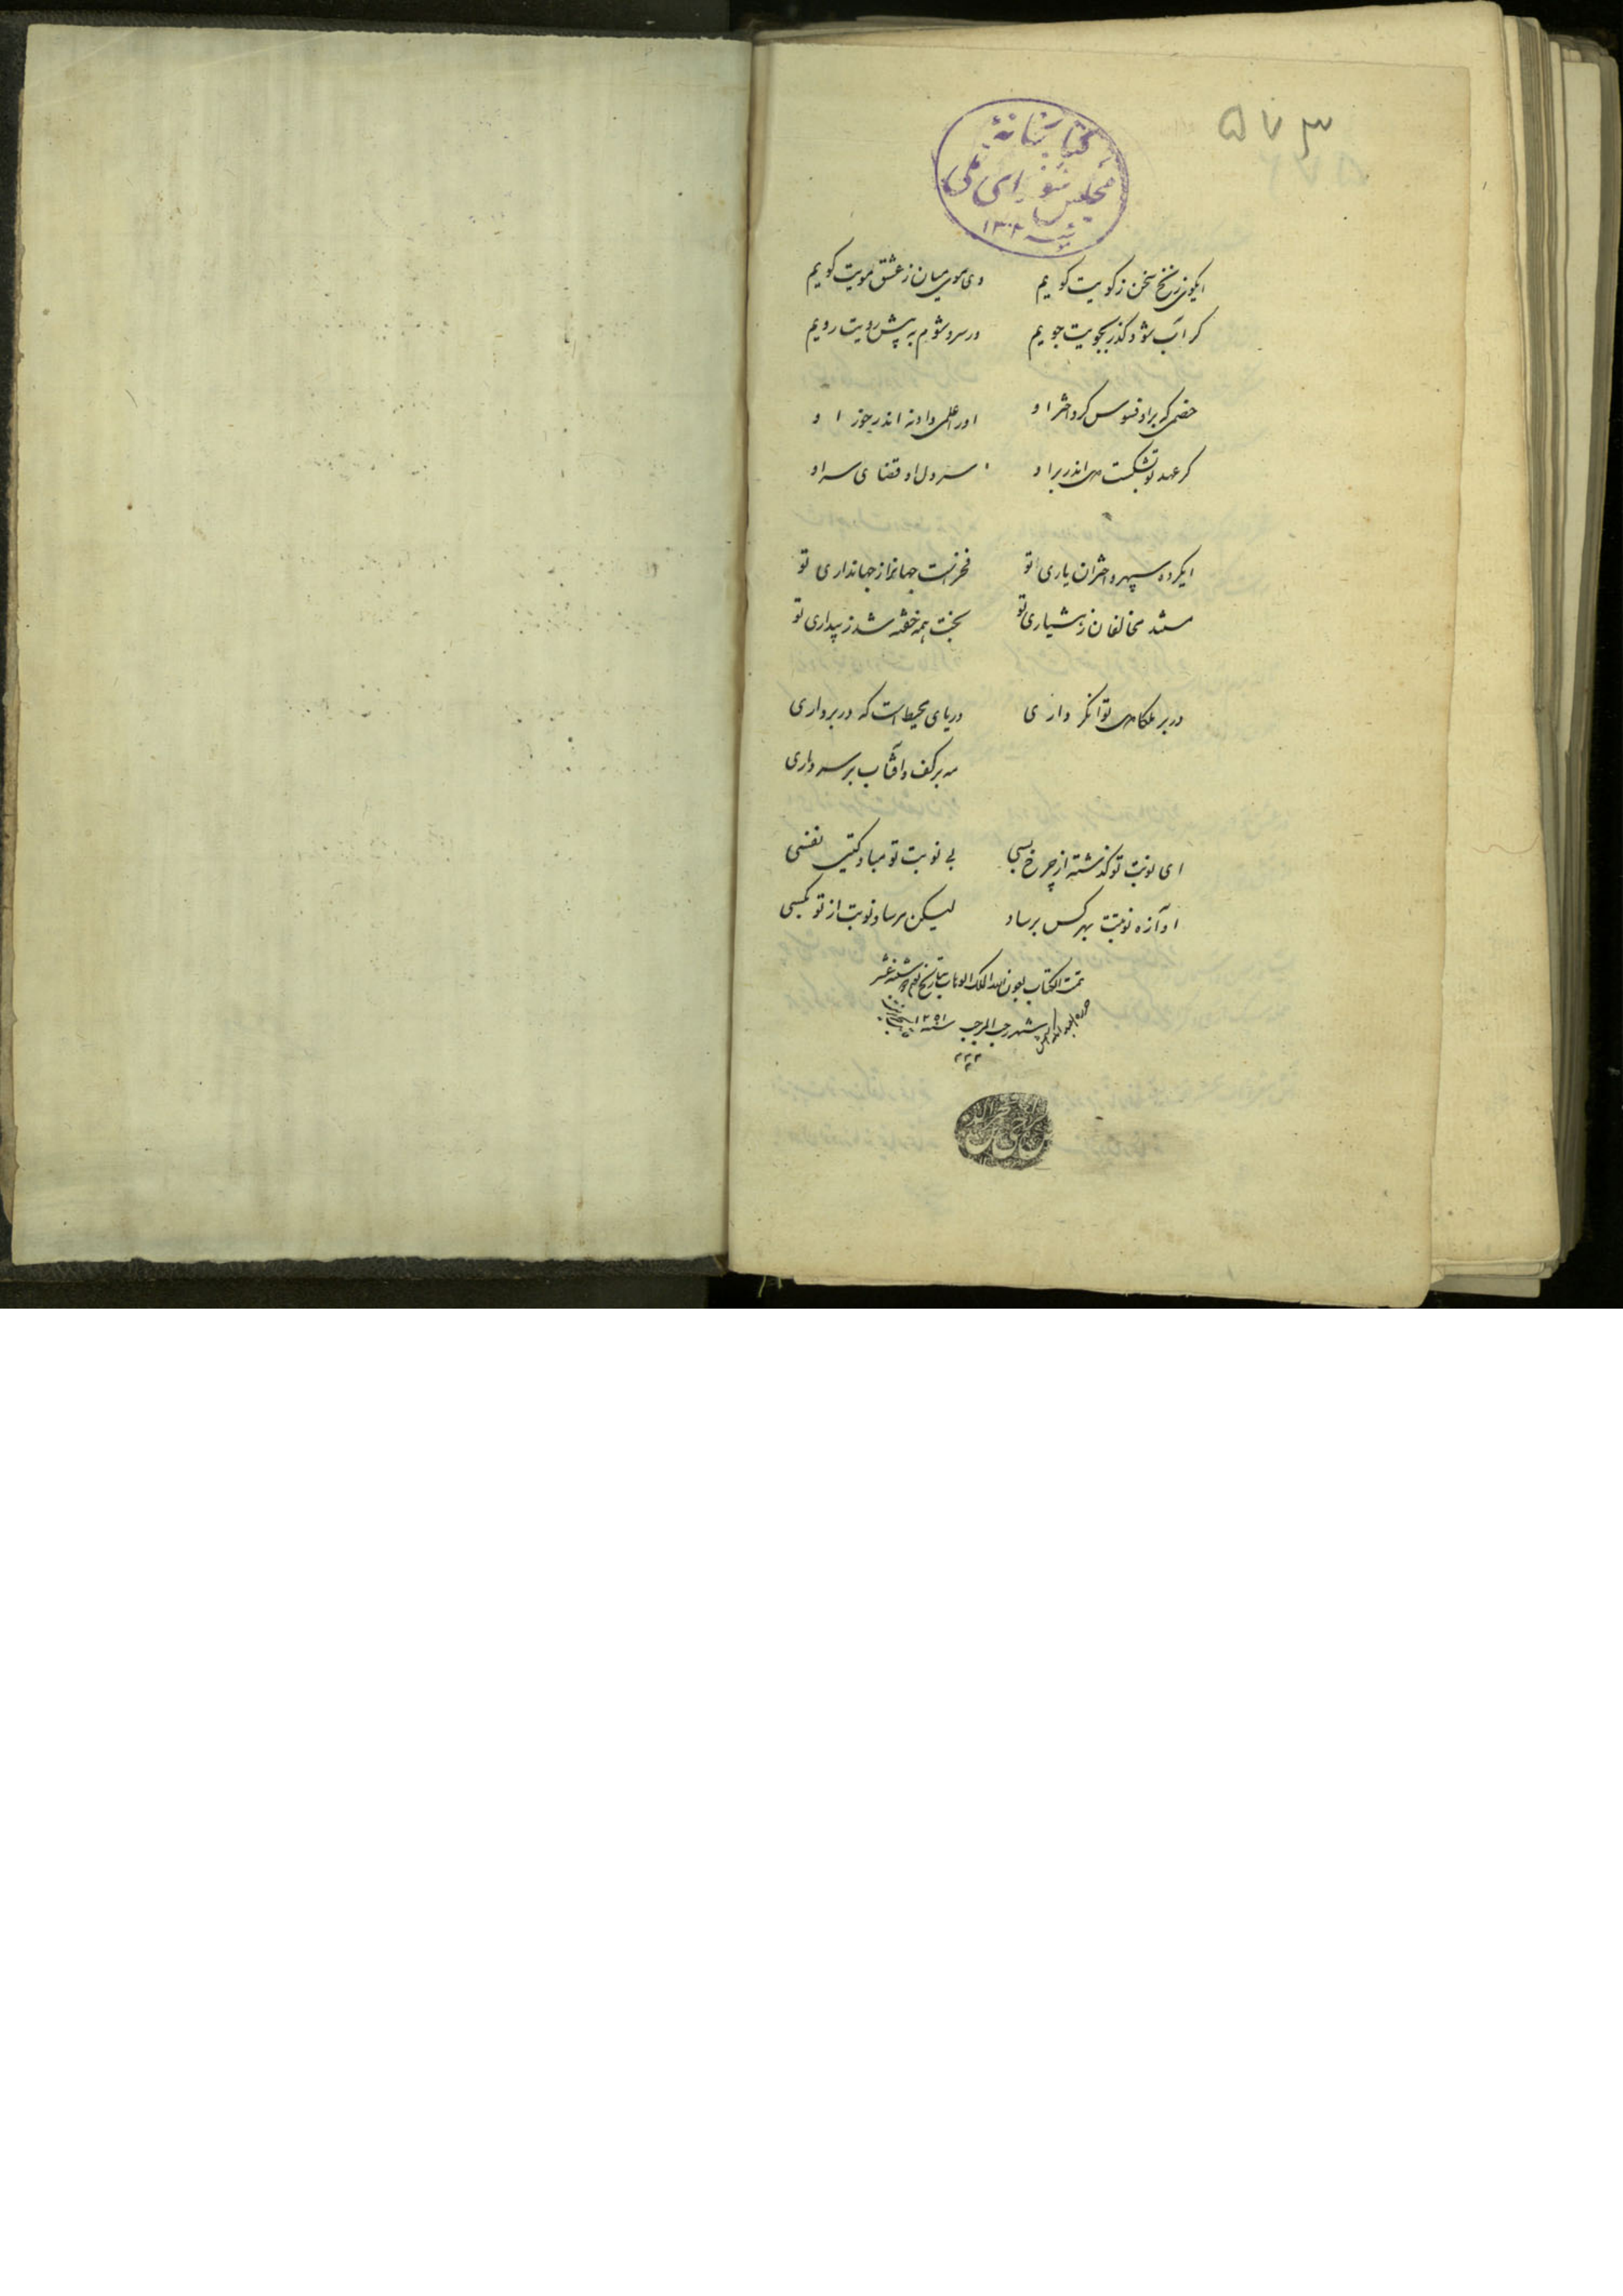 ۵۷۳
کتابخانهٔ
مجلس شورای ملی
۱۳۰۲
ایگوی زنخ سخن ز کویت کویم وی موی میان ز عشق مویت کویم
کر آب شود کذر بجویت جویم ور سرو شوم به پیش رویت رویم
خصمی که بر او فسوس کرد اختر او او را علمی دادند اندر خور او
کر عهد تو بشکست اندر بر او سر دل او قضای سر او
ایکرده سپهر و اختران یاری تو فخرست جهانرا از جهانداری تو
مستند مخالفان ز هشیاری تو بخت همه خفته شد ز بیداری تو
در بر ملکا تو انکر داری دریای محیط است که در بر داری
مه بر کف و آفتاب بر سر داری
ای نوبت تو کذشته از چرخ بسی بی نوبت تو مباد کیتی نفسی
آوازه نوبتت بهر کس برساد لیکن مرساد نوبت از تو بکسی
تمت الکتاب بعون الله الملک الوهاب بتاریخ یوم
شهر رجب المرجب سنه ۱۲۵۱